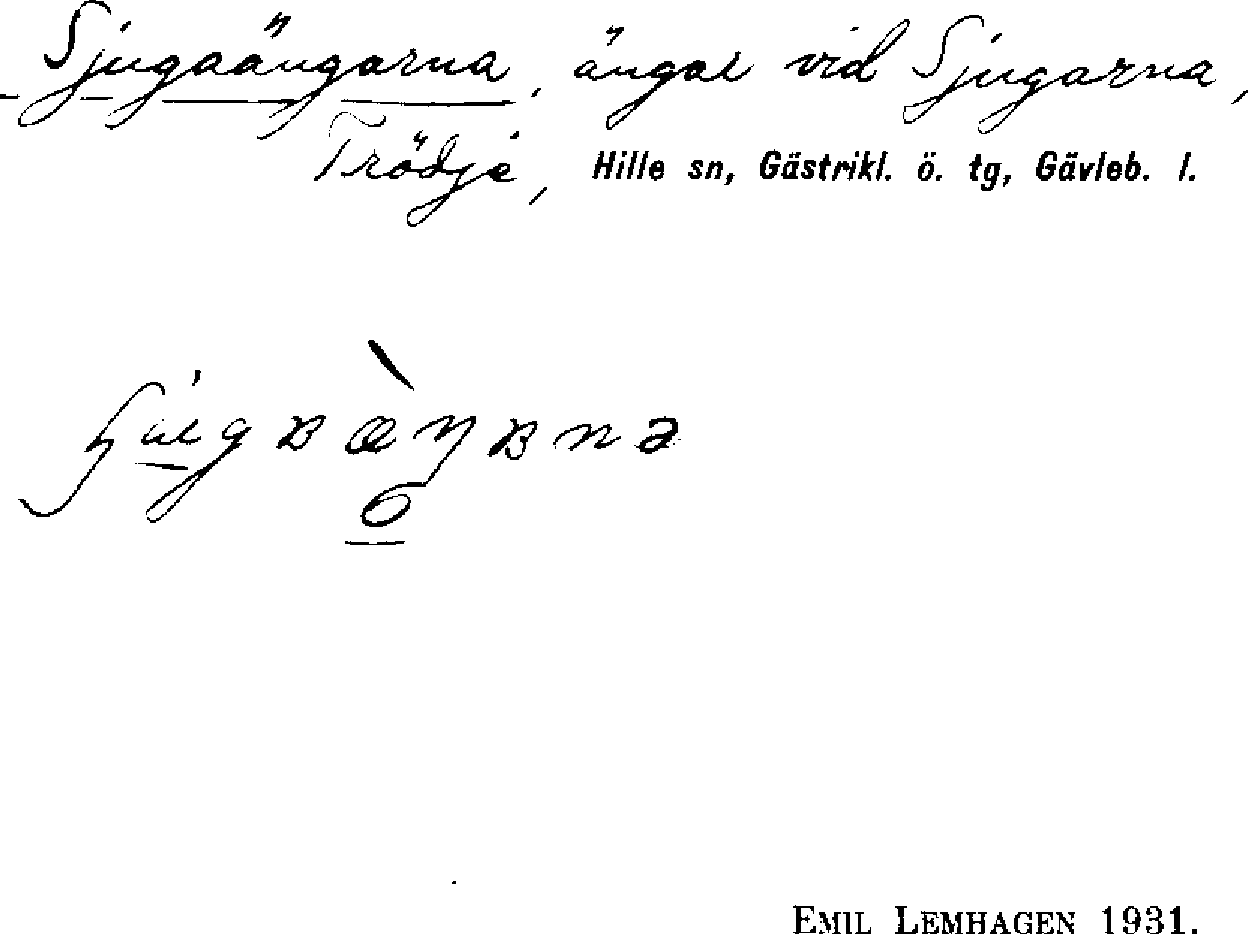 Sjugaängarna, ängar vid Sjugarna,
Trödje, Hille sn, Gästrikl. ö. tg, Gävleb. l.
EMIL LEMHAGEN 1931.